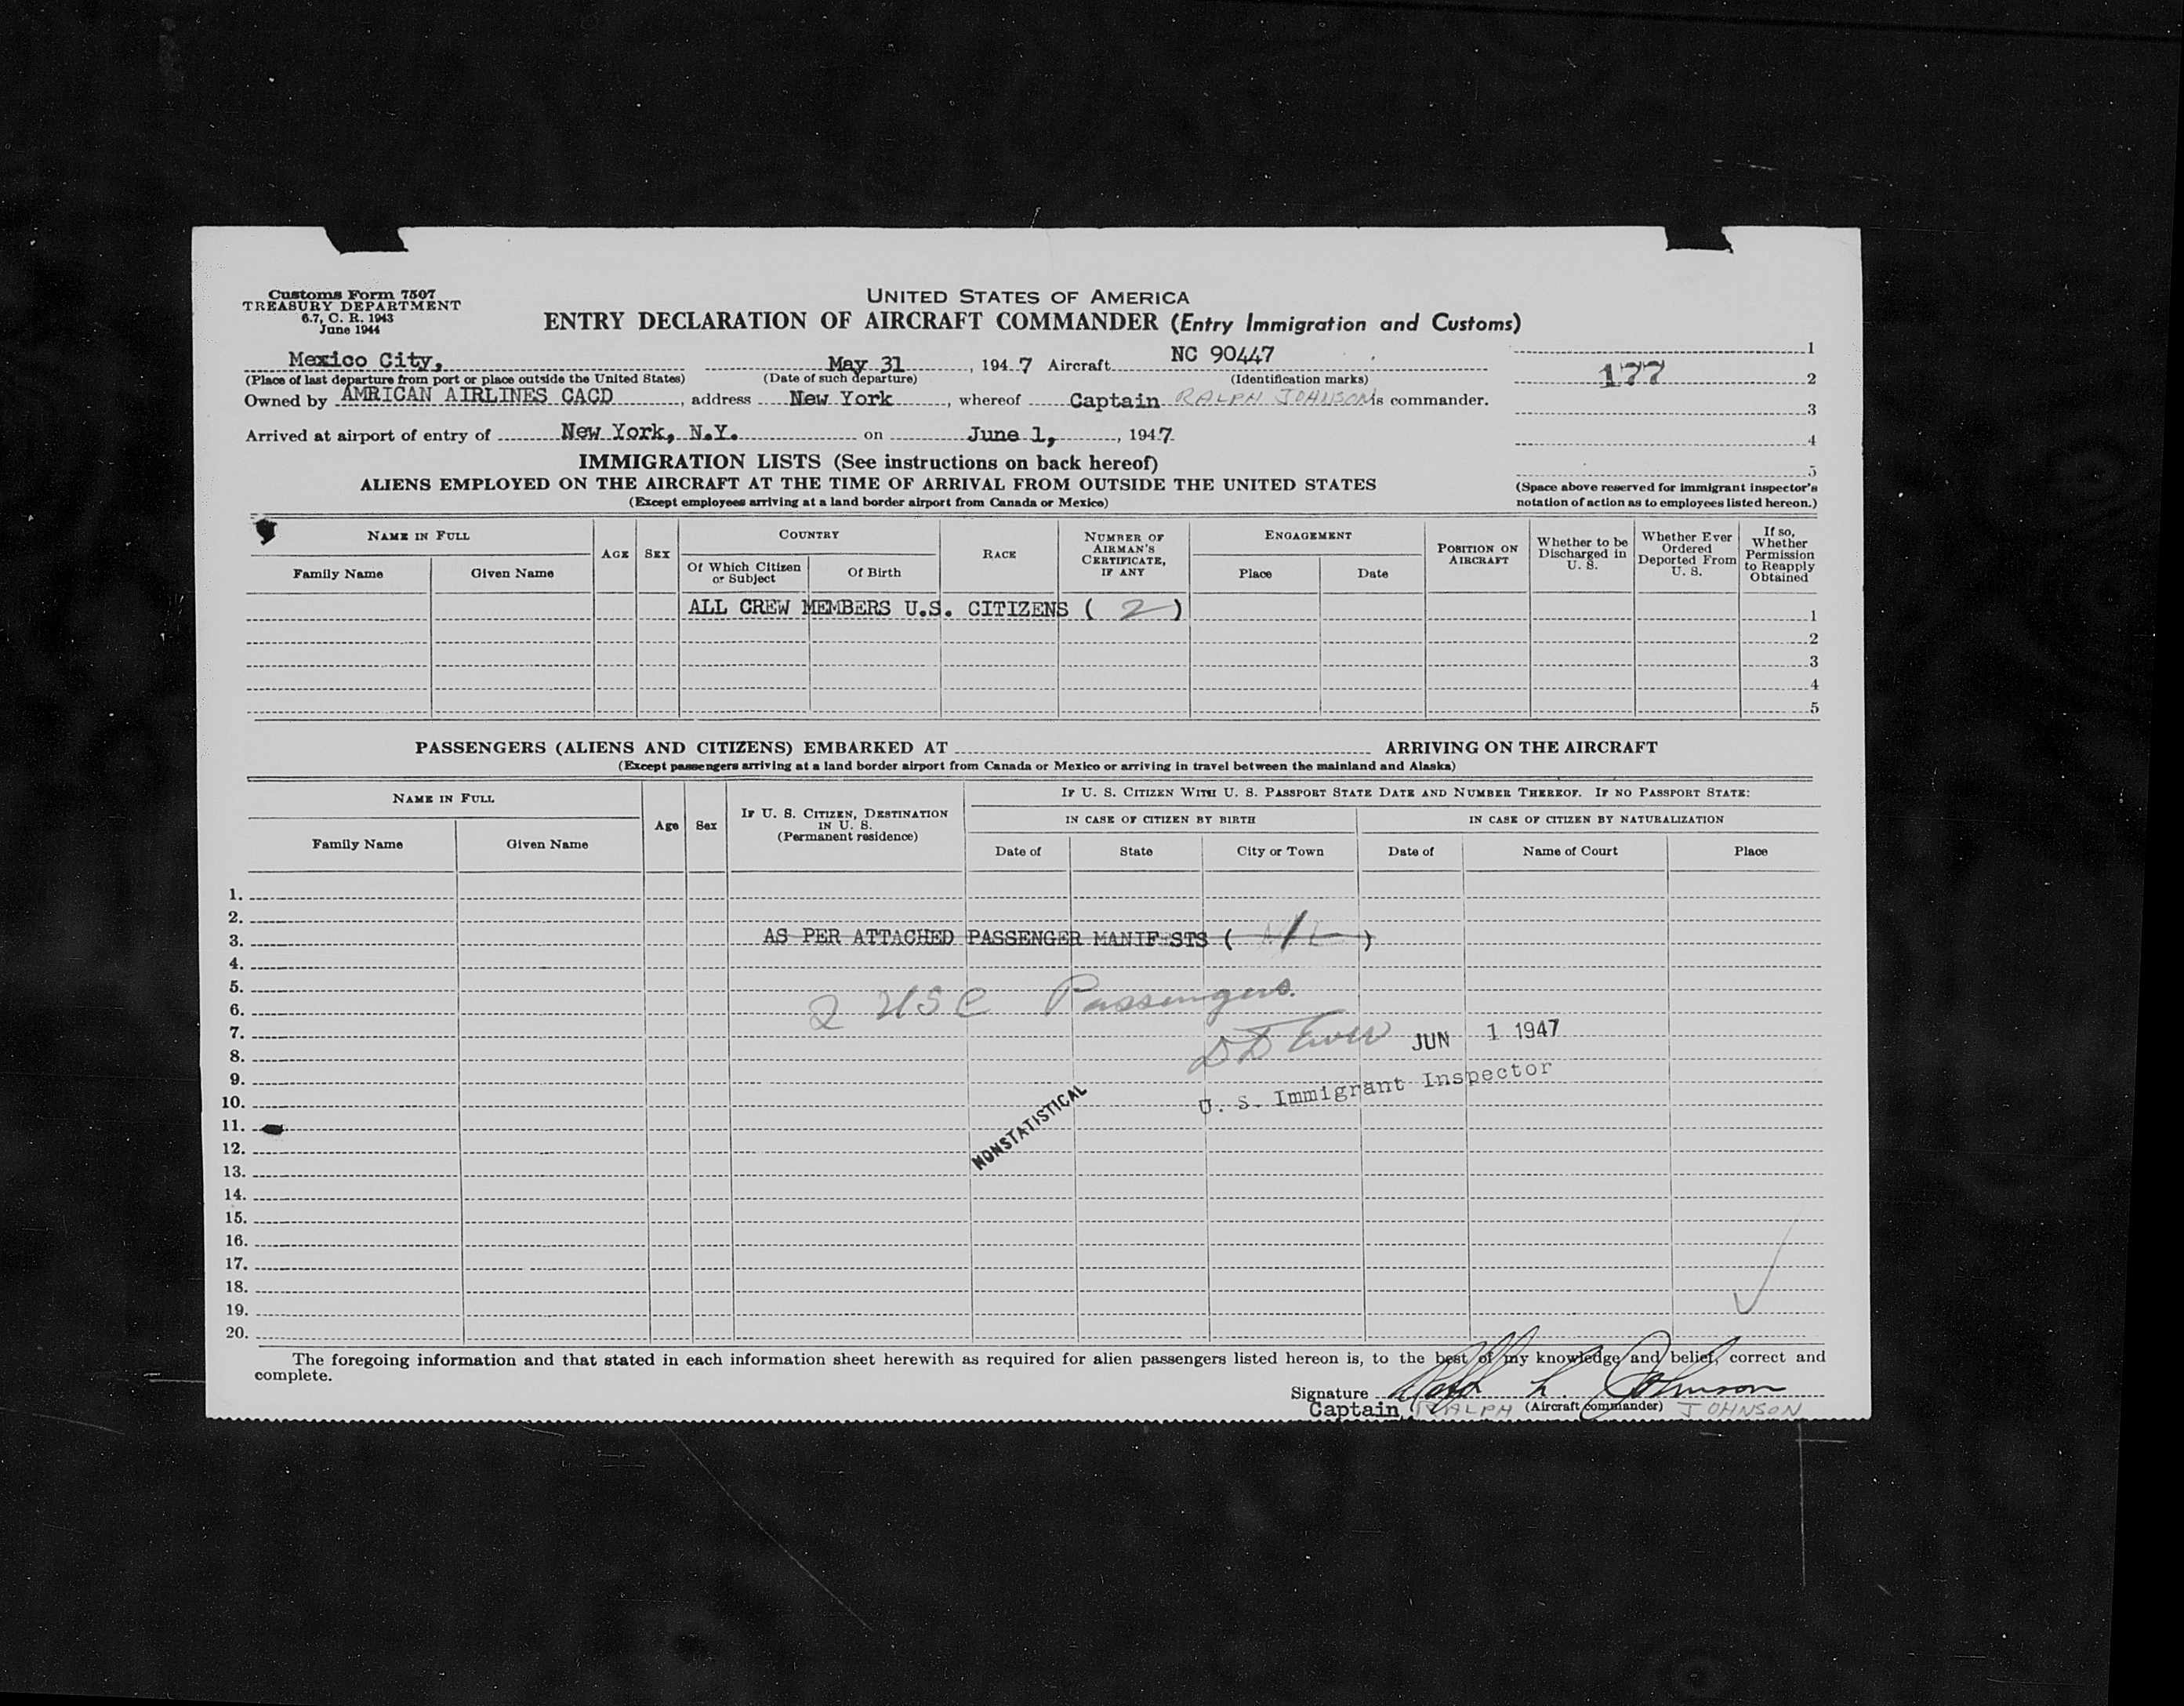 Customs Form 7507
TREASURY DEPARTMENT
6.7, C. R. 1943
June 1944
UNITED STATES OF AMERICA
ENTRY DECLARATION OF AIRCRAFT COMMANDER (Entry Immigration and Customs)
Mexico City, May 31, 1947 Aircraft NC 90447
(Place of last departure from port or place outside the United States) (Date of such departure) (Identification marks)
Owned by AMRICAN AIRLINES CACD, address New York, whereof Captain RALPH JOHNSON is commander.
Arrived at airport of entry of New York, N.Y. on June 1, 1947
1
177 2
3
4
5
(Space above reserved for immigrant inspector's
notation of action as to employees listed hereon.)
IMMIGRATION LISTS (See instructions on back hereof)
ALIENS EMPLOYED ON THE AIRCRAFT AT THE TIME OF ARRIVAL FROM OUTSIDE THE UNITED STATES
(Except employees arriving at a land border airport from Canada or Mexico)
NAME IN FULL
Family Name Given Name
AGE SEX
COUNTRY
Of Which Citizen or Subject
Of Birth
RACE
NUMBER OF AIRMAN'S CERTIFICATE, IF ANY
ENGAGEMENT
Place Date
POSITION ON AIRCRAFT
Whether to be Discharged in U. S.
Whether Ever Ordered Deported From U. S.
If so, Whether Permission to Reapply Obtained
ALL CREW MEMBERS U.S. CITIZENS ( 2 ) 1
2
3
4
5
PASSENGERS (ALIENS AND CITIZENS) EMBARKED AT ARRIVING ON THE AIRCRAFT
(Except passengers arriving at a land border airport from Canada or Mexico or arriving in travel between the mainland and Alaska)
NAME IN FULL
Family Name Given Name
Age Sex
IF U. S. CITIZEN, DESTINATION IN U. S.
(Permanent residence)
IF U. S. CITIZEN WITH U. S. PASSPORT STATE DATE AND NUMBER THEREOF. IF NO PASSPORT STATE:
IN CASE OF CITIZEN BY BIRTH IN CASE OF CITIZEN BY NATURALIZATION
Date of State City or Town Date of Name of Court Place
1.
2.
3. AS PER ATTACHED PASSENGER MANIFSTS ( )
4.
5.
6. 2 USC Passengers.
7. JUN 1 1947
8.
9. U. S. Immigrant Inspector
10.
11. NONSTATISTICAL
12.
13.
14.
15.
16.
17.
18.
19.
20.
The foregoing information and that stated in each information sheet herewith as required for alien passengers listed hereon is, to the best of my knowledge and belief, correct and
complete.
Signature Ralph L. Johnson
Captain RALPH (Aircraft commander) JOHNSON